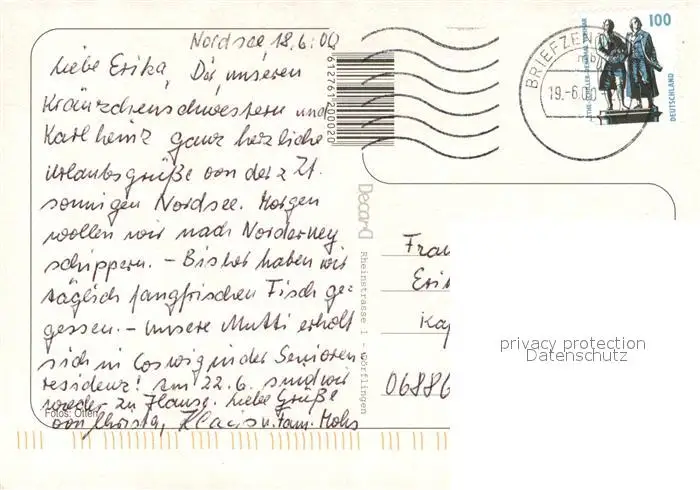 Nordsee 18.6.00
Liebe Erika, Dir, unseren
Kränzchenschwestern und
Karlheinz ganz herzliche
Urlaubsgrüße von der z Zt.
sonnigen Nordsee. Morgen
wollen wir nach Norderney
schippern. – Bisher haben wir
täglich fangfrischen Fisch ge-
gessen. – Unsere Mutti erholt
sich in Coswig in der Senioren-
residenz! Am 22.6. sind wir
wieder zu Hause. Liebe Grüße
von Christa, Klaus u. Fam. Mohs
Fotos: Otten
6127617200020
Decor-D
Rheinstrasse 1 -
BRIEFZEN
19.-6.00
100
DEUTSCHLAND
Frau
Eri
Ka
06886
privacy protection
Datenschutz